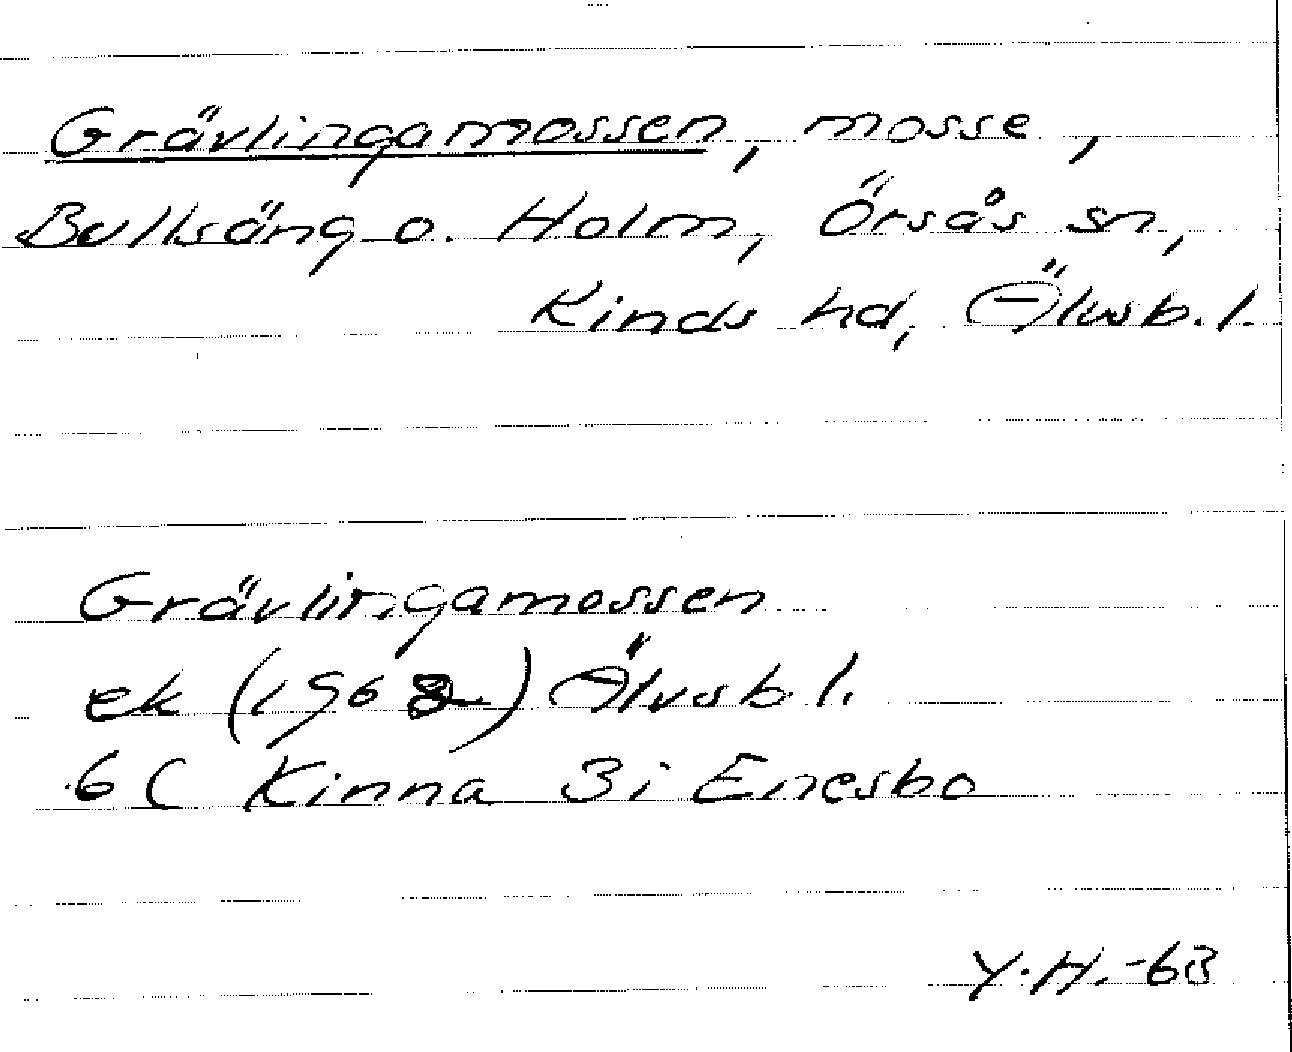 Grävlingamossen, mosse,
Bullsäng o. Holm, Örsås sn,
Kinds hd, Älvsb. l.
Grävlingamossen
ek (1962) Älvsb l.
6 C Kinna 3i Enesbo
Y.H.-63